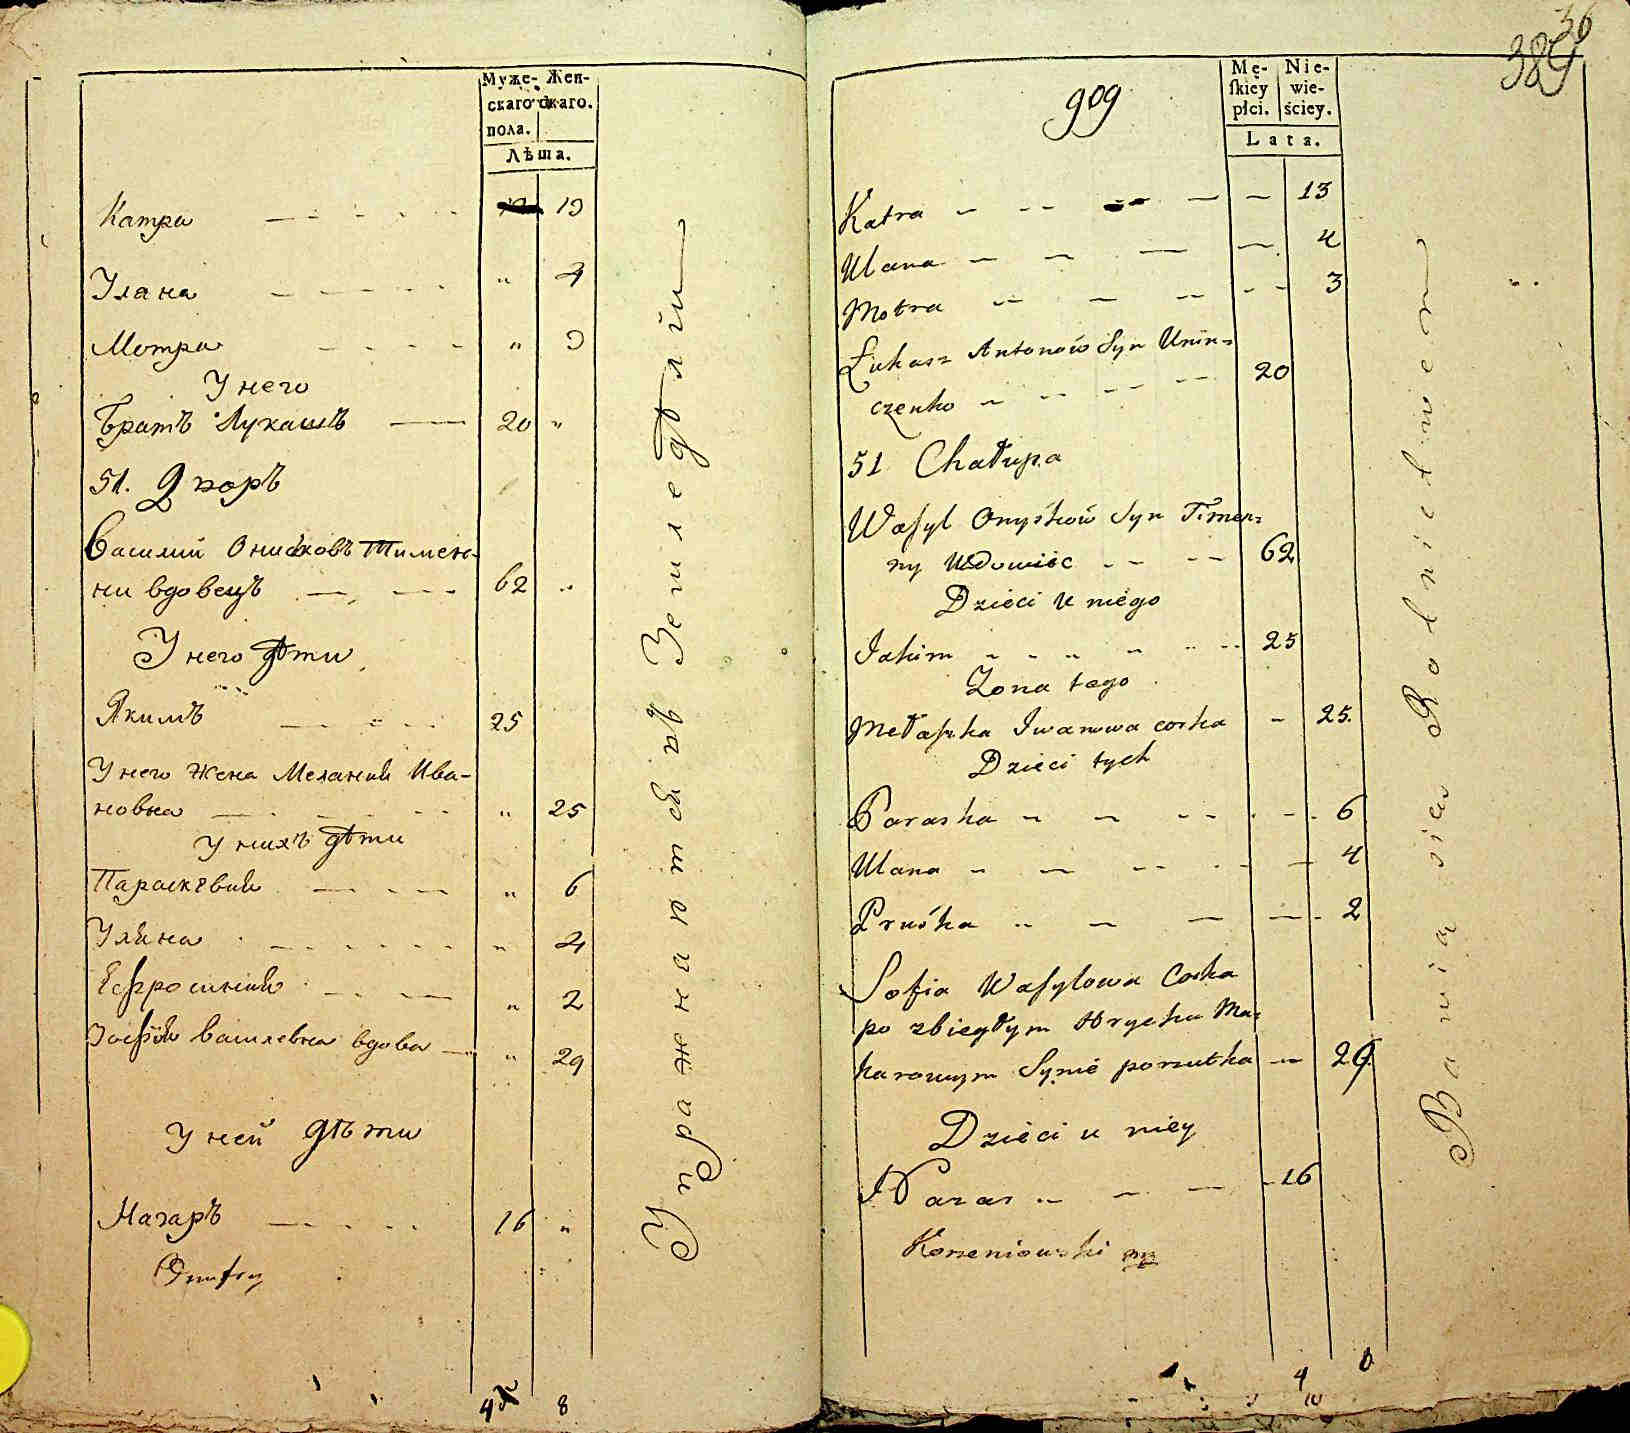 Муже- Жен-
скаго скаго.
пола.
Лѣта.
Катра 13
Улана " 4
Мотра " 3
У него
Братъ Лукашъ 20 "
51. Дворъ
Василий Ониськовъ Тимен-
ни вдовецъ 62 "
У него дѣти
Якимъ 25
У него жена Мелания Ива-
новна " 25
У нихъ дѣти
Параскевия " 6
Уляна " 4
Ефросиния " 2
Зофия Василевна вдова " 29
У ней дѣти
Назаръ 16 "
4 8
Упражняются въ Земледѣлии
36
384
909
Mę- Nie-
skiey wie-
płci. ściey.
Lata.
Katra 13
Ulana 4
Motra 3
Łukasz Antonow Syn Unin=
czenko 20
51 Chałupa
Wasyl Onyśkow Syn Timen=
ny Wdowiec 62
Dzieci u niego
Jakim 25
Zona tego
Metaszka Iwanowa corka 25.
Dzieci tych
Paraska 6
Ulana 4
Pruśka 2
Sofia Wasylowa Corka
po zbiegłym Hryćku Ma=
karowym Synie porzutka 29
Dzieci u niey
Nazar 16
Korzeniowski mp
4
Bawią się Rolnictwem